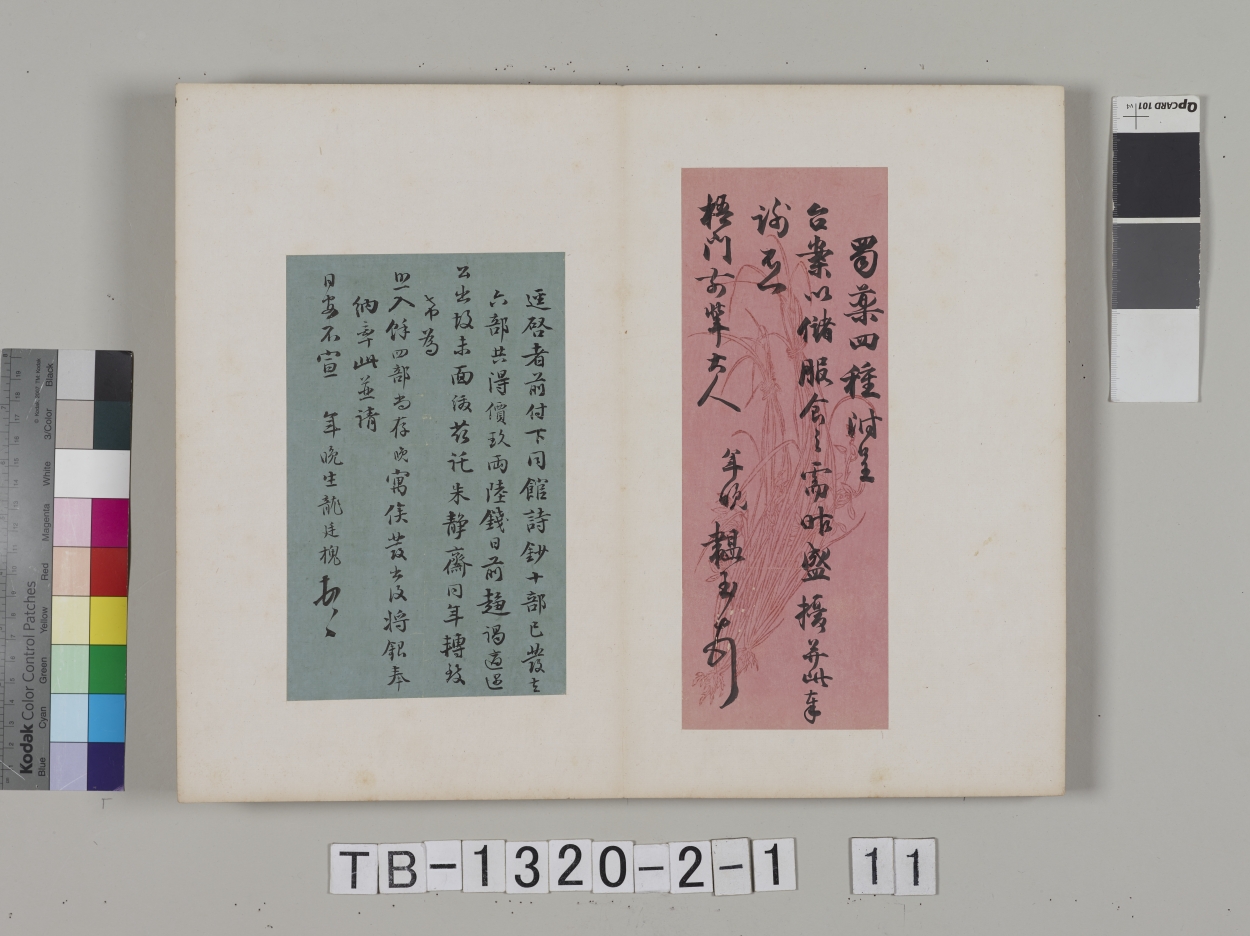 蜀藥四種附呈
台案以儲服食之需昨盛擾并此奉
謝不一
梧門前輩大人 年晚韞玉頓
逕啓者前付下同館詩鈔十部已發去
六部共得價玖兩陸錢日前趨謁適遇
公出故未面繳茲託朱靜齋同年轉致
希為
照入餘四部尚存晚寓俟發出後將銀奉
納率此並請
日安不宣 年晚生龍廷槐
QPCARD 101 v4
Kodak Color Control Patches
Blue Cyan Green Yellow Red Magenta White 3/Color Black
TB-1320-2-1 11